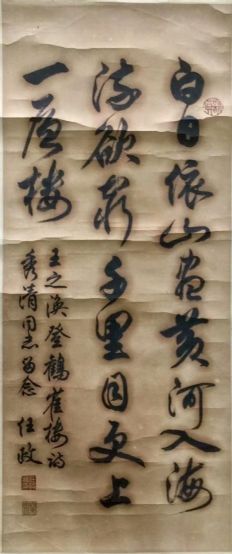 白日依山尽黄河入海
流欲穷千里目更上
一层楼
王之涣登鹤雀楼诗
秀清同志留念 任政